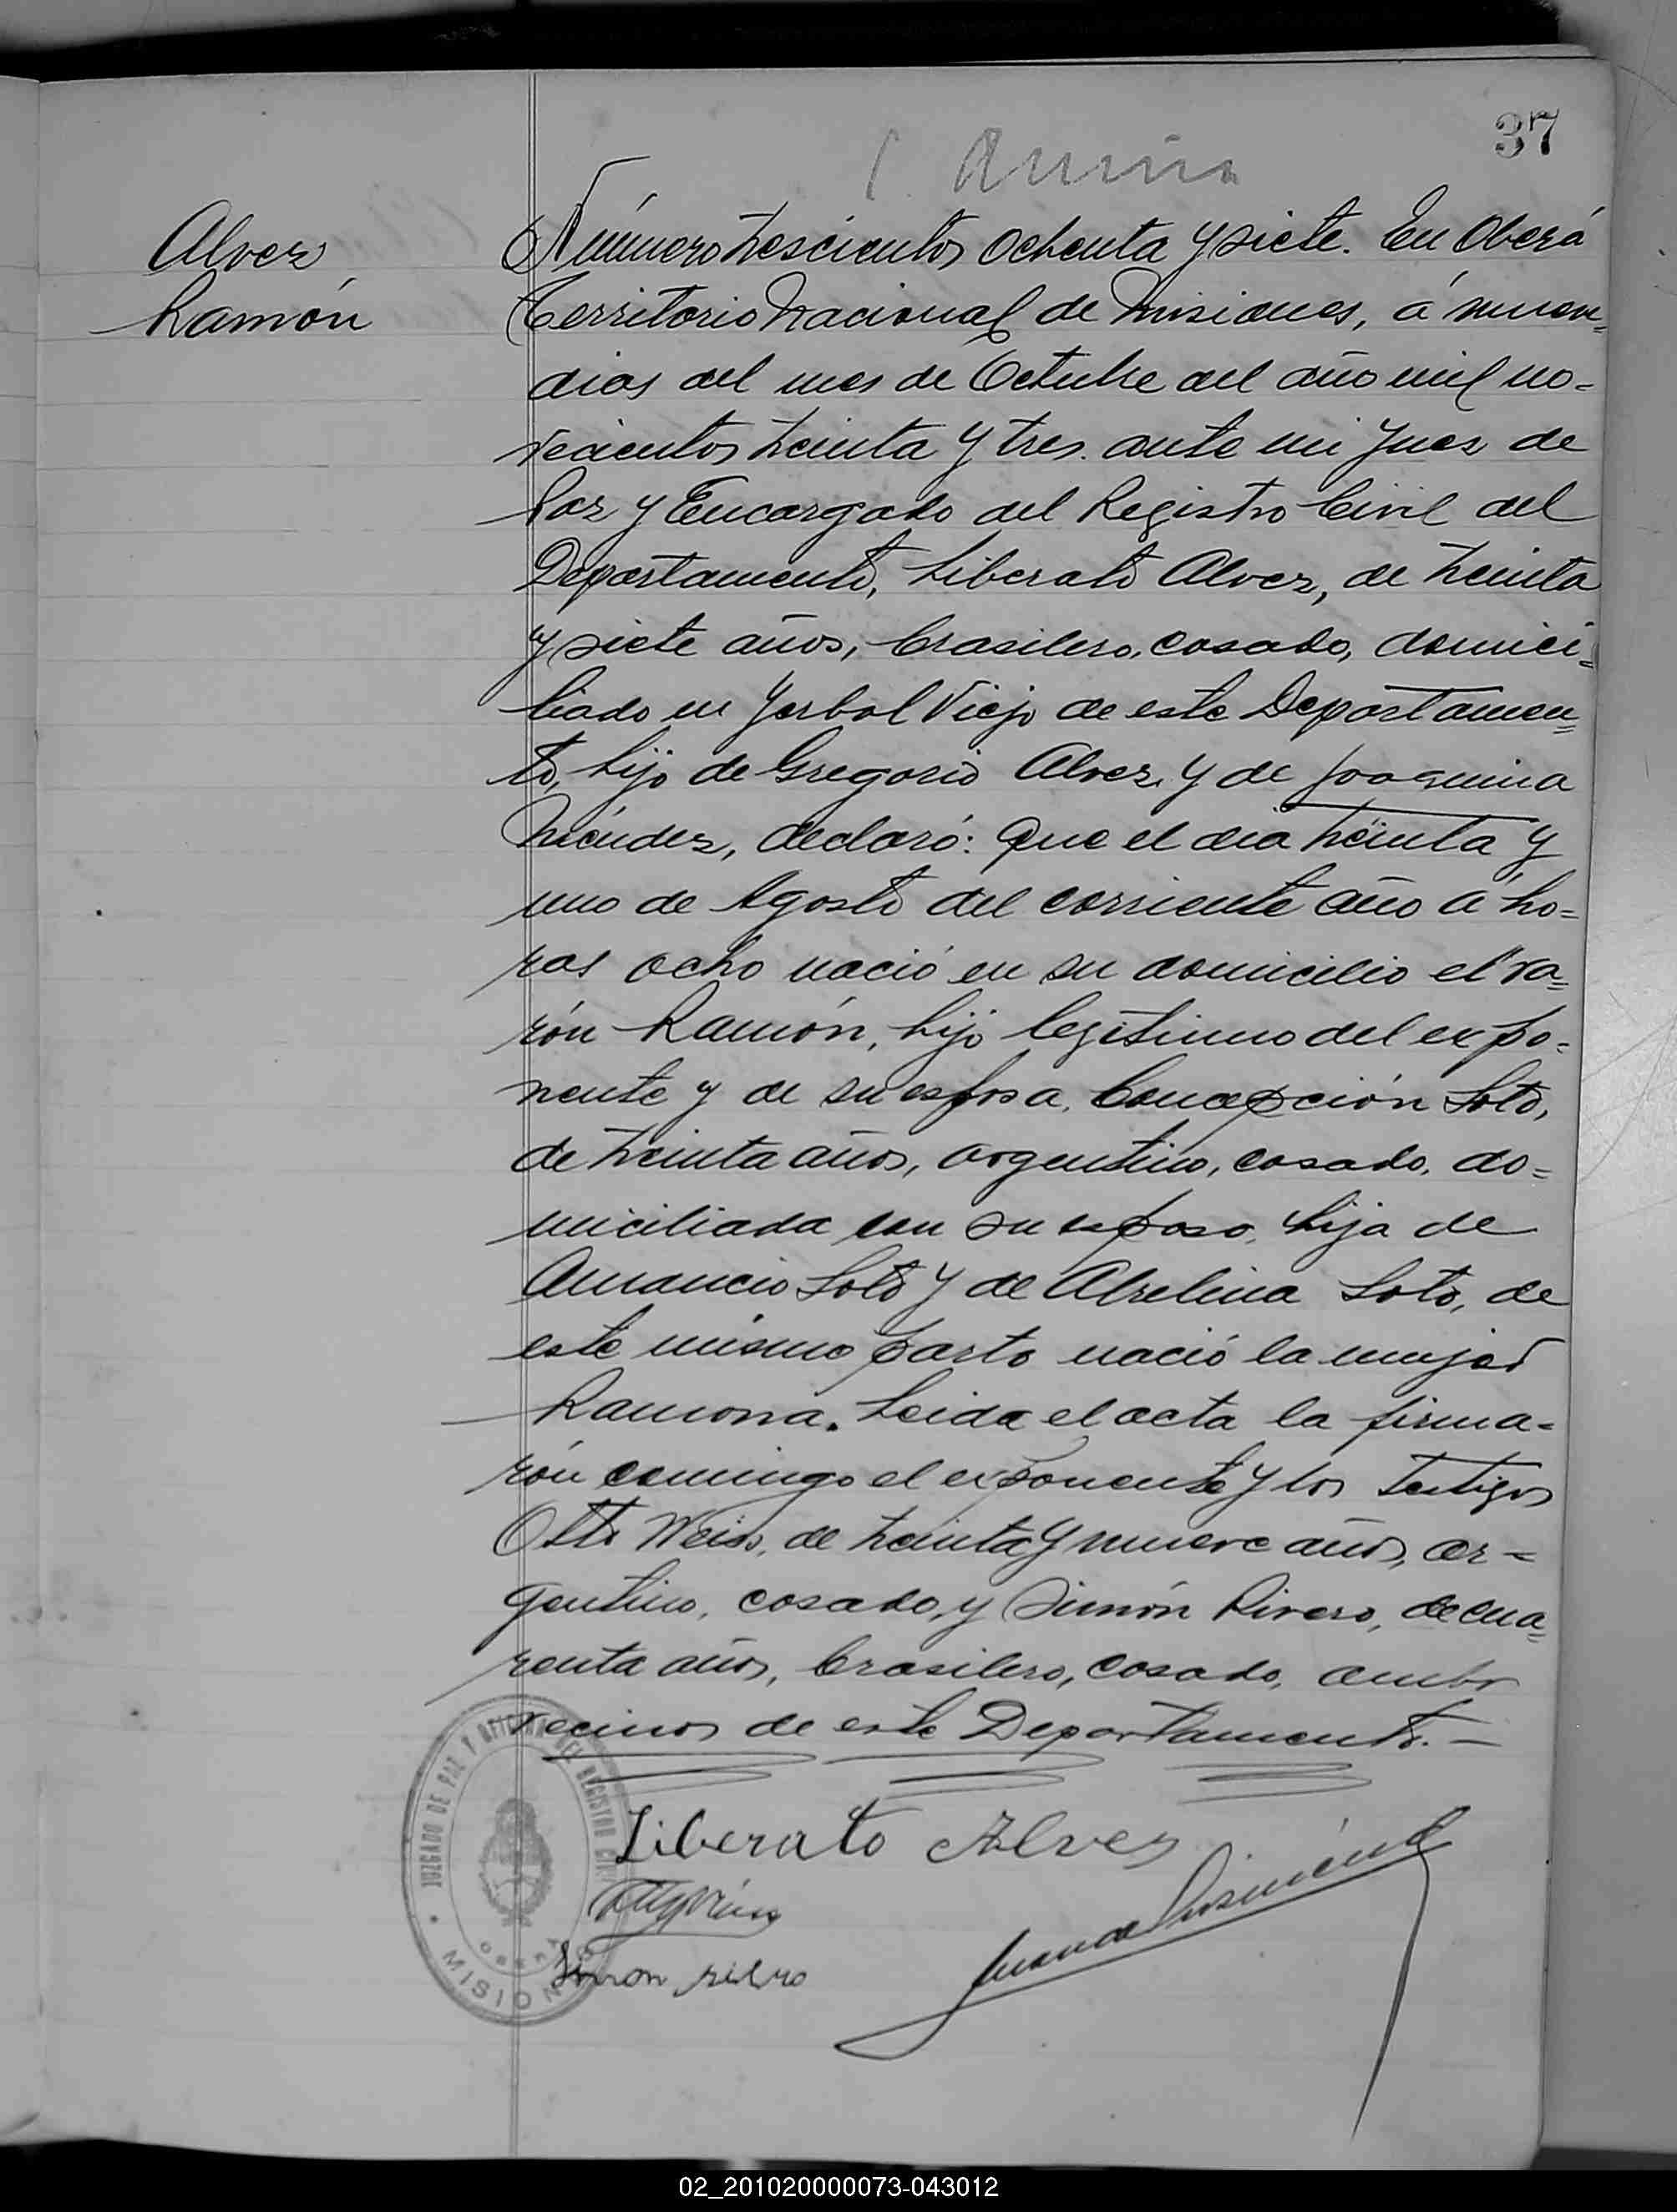 37
Alvez
Ramón
Número trescientos ochenta y siete. En Oberá
Territorio Nacional de Misiones, á nueve
dias del mes de Octubre del año mil no=
vecientos treinta y tres. ante mi Juez de
Paz y Encargado del Registro Civil del
Departamento, Liberato Alvez, de treinta
y siete años, brasilero, casado, domici=
liado en Yerbal Viejo de este Departamen=
to, hijo de Gregorio Alvez y de Joaquina
Méndez, declaró: Que el dia treinta y
uno de Agosto del corriente año a ho=
ras ocho nació en su domicilio el va=
rón Ramón, hijo legitimo del expo=
nente y de su esposa, Concepción Soto,
de treinta años, argentino, casado, do=
miciliada con su esposo, hija de
Amancio Soto y de Abelina Soto, de
este mismo parto nació la mujer
Ramona. Leida el acta la firma=
rón comingo el exponente y los testigos
Otto Weiss, de treinta y nueve años, ar=
gentino, casado, y Simón Rivero, de cua=
renta años, brasilero, casado, ambos
vecinos de este Departamento. —
Liberato Alves
Simon
JUZGADO DE PAZ Y OFICINA DEL REGISTRO CIVIL
OBERA
MISIONES
02_201020000073-043012